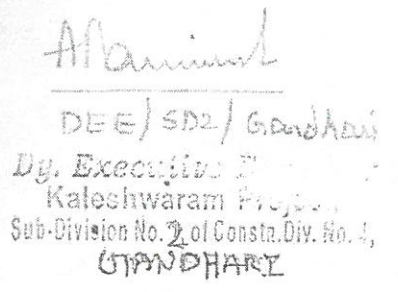 DEE/SD2/Gandhari
Dy. Executive
Kaleshwaram Project
Sub-Division No. 2 of Constn. Div. No. 4,
GANDHARI